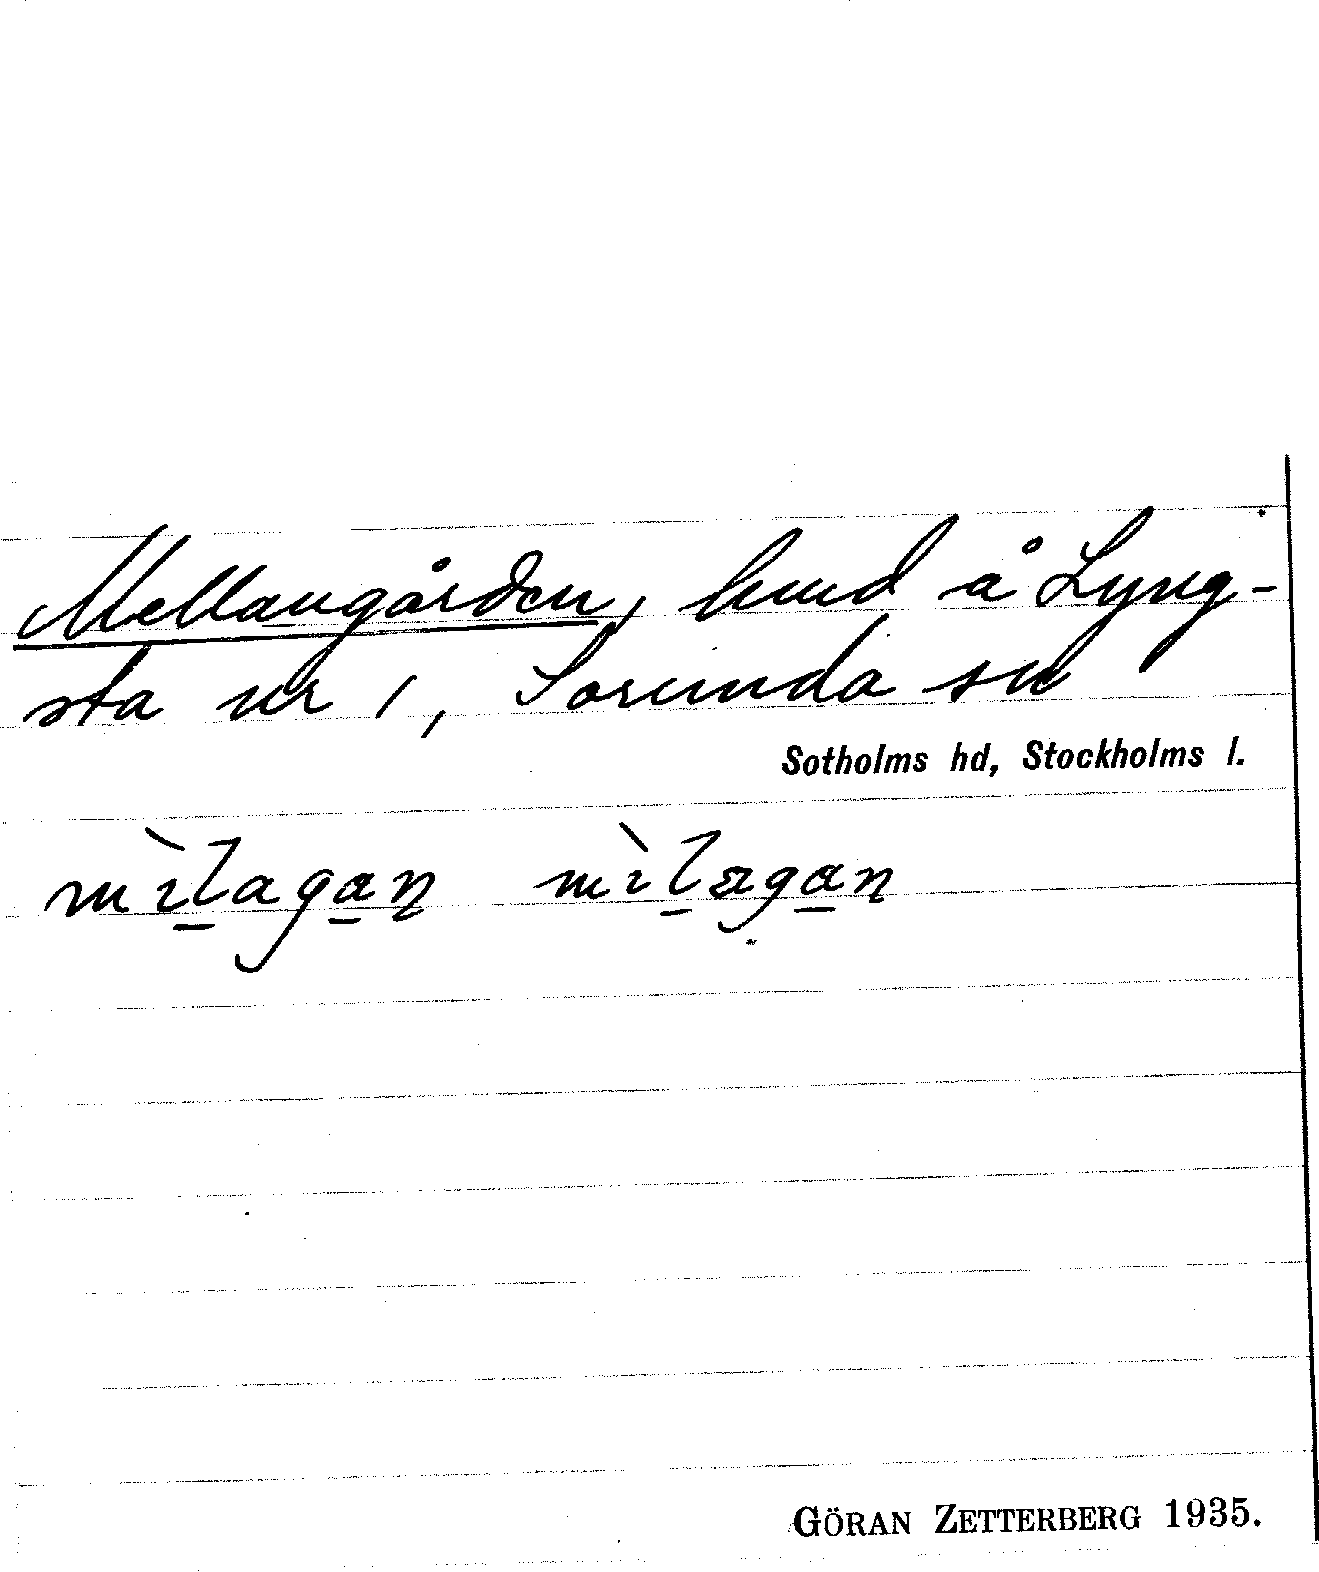 Mellangården, hmd å Lyng-
sta nr 1, Sorunda sn
Sotholms hd, Stockholms l.
mìlagan mìlægan
GÖRAN ZETTERBERG 1935.